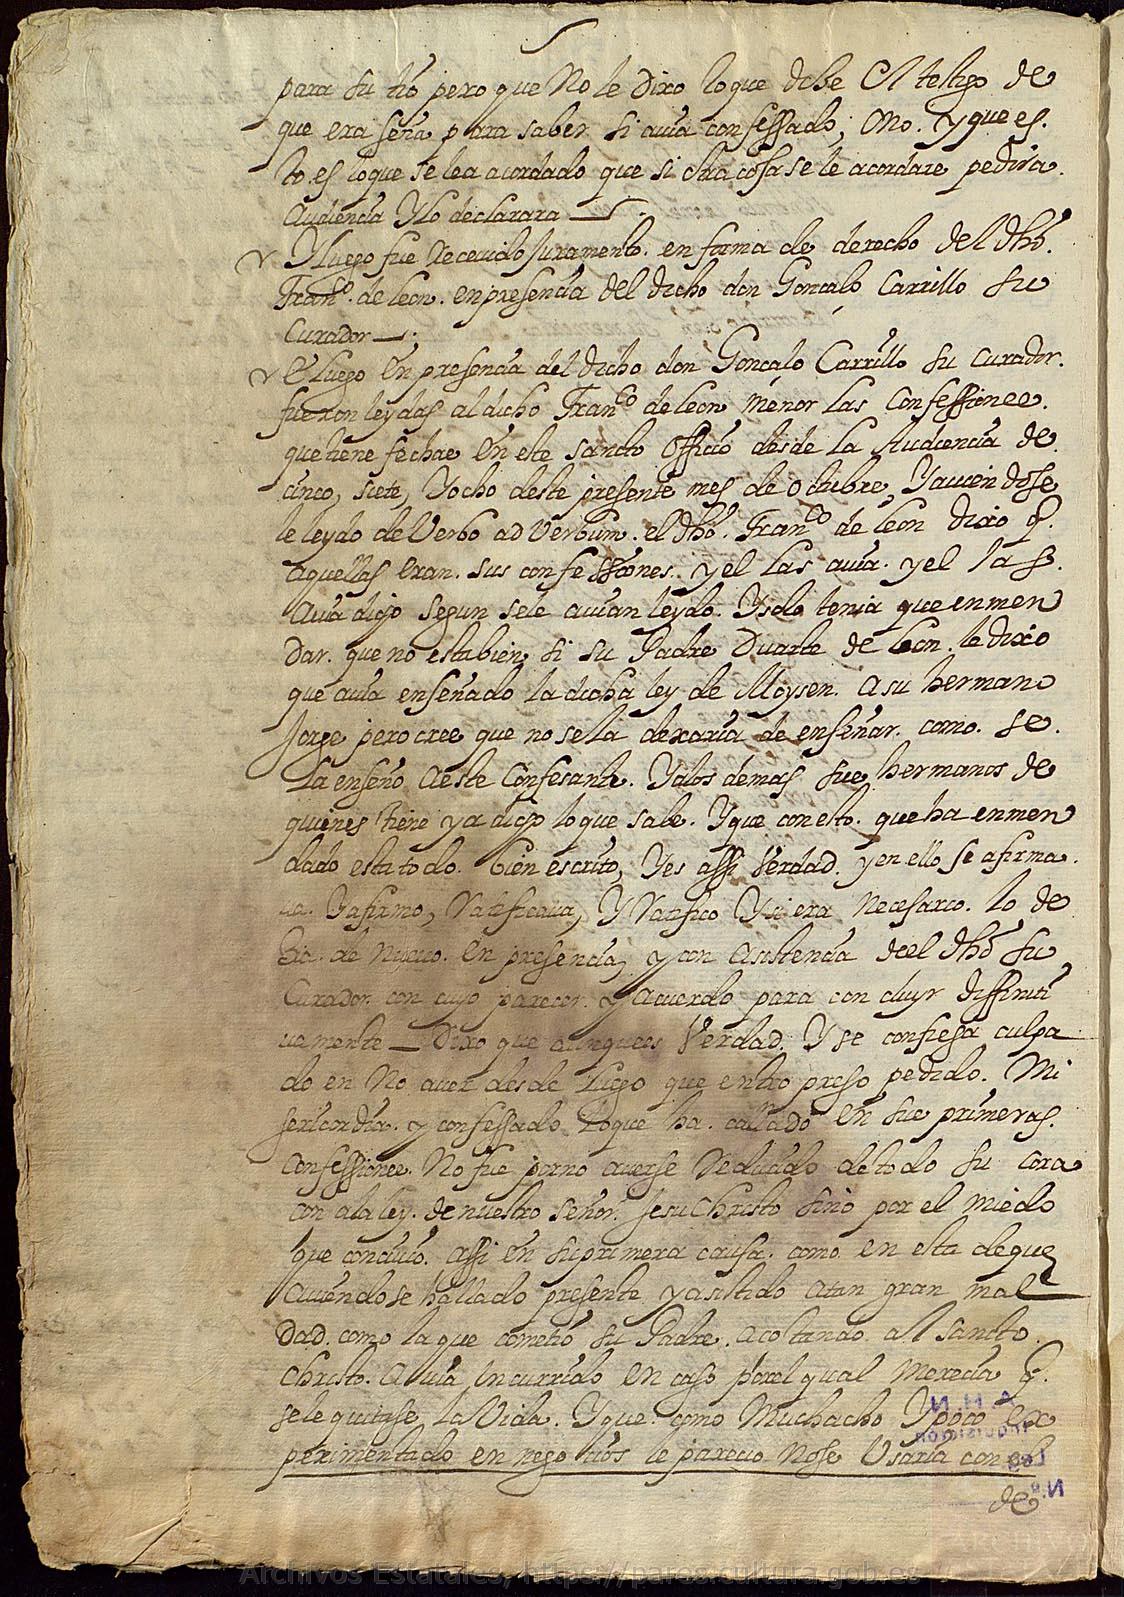 para su tio pero que No le Dixo lo que debe el testigo de
que era seña para saber si auia confessado, o No. Y que es
to es lo que se le a acordado que si otra cosa se le acordare pedira
Audiencia Y lo declarara
Y luego fue Receuido Juramento en forma de derecho del dho
Franco de leon en presencia del dicho don Gonçalo Carrillo su
Curador
E luego En presencia del dicho don Gonçalo Carrillo su curador
fueron leydas al dicho Franco de leon menor las Confessiones
que tiene fechas En este sancto officio desde la Audiencia de
cinco, siete, Y ocho deste presente mes de octubre, Y auiendose
le leydo de Verbo ad Verbum el dho Franco de leon dixo q
aquellas eran sus confessiones y el las auia y el las
auia dicho segun se le auian leydo. Y solo tenia que enmen
dar que no esta bien si su Padre Duarte de leon le dixo
que auia enseñado la dicha ley de Moysen a su hermano
Jorge pero cree que no se la dexaria de enseñar como se
la enseño a este Confesante. Y a los demas sus hermanos de
quienes tiene ya dicho lo que sabe. Y que con esto que ha enmen
dado esta todo bien escrito, Y es assi Verdad y en ello se afirma
ua Y afirmo, Ratificaua, Y Ratifico Y si era necesario lo de
zia de nueuo en presencia, y con asistencia del dho su
Curador con cuyo parecer y acuerdo para concluyr diffiniti
uamente Dixo que aunque es Verdad Y se confiesa culpa
do en No auer desde luego que entro preso pedido Mi
sericordia y confessado lo que ha callado En sus primeras
Confessiones No fue por no auerse Reduzido de todo su cora
con a la ley de nuestro señor Jesu Christo sino por el miedo
que conciuio assi en su primera causa como en esta de que
Auiendose hallado presente y asistido a tan gran mal
dad como la que cometio su Padre acotando al sancto
Christo Auia incurrido en caso por el qual merecia q
se le quitase la Vida. Y que como Muchacho Y poco ex
perimentado en negocios le parecio no se Usaria con el
de
A.H.N.
Inquisición
Leg
N.º
Archivos Estatales, https://pares.cultura.gob.es